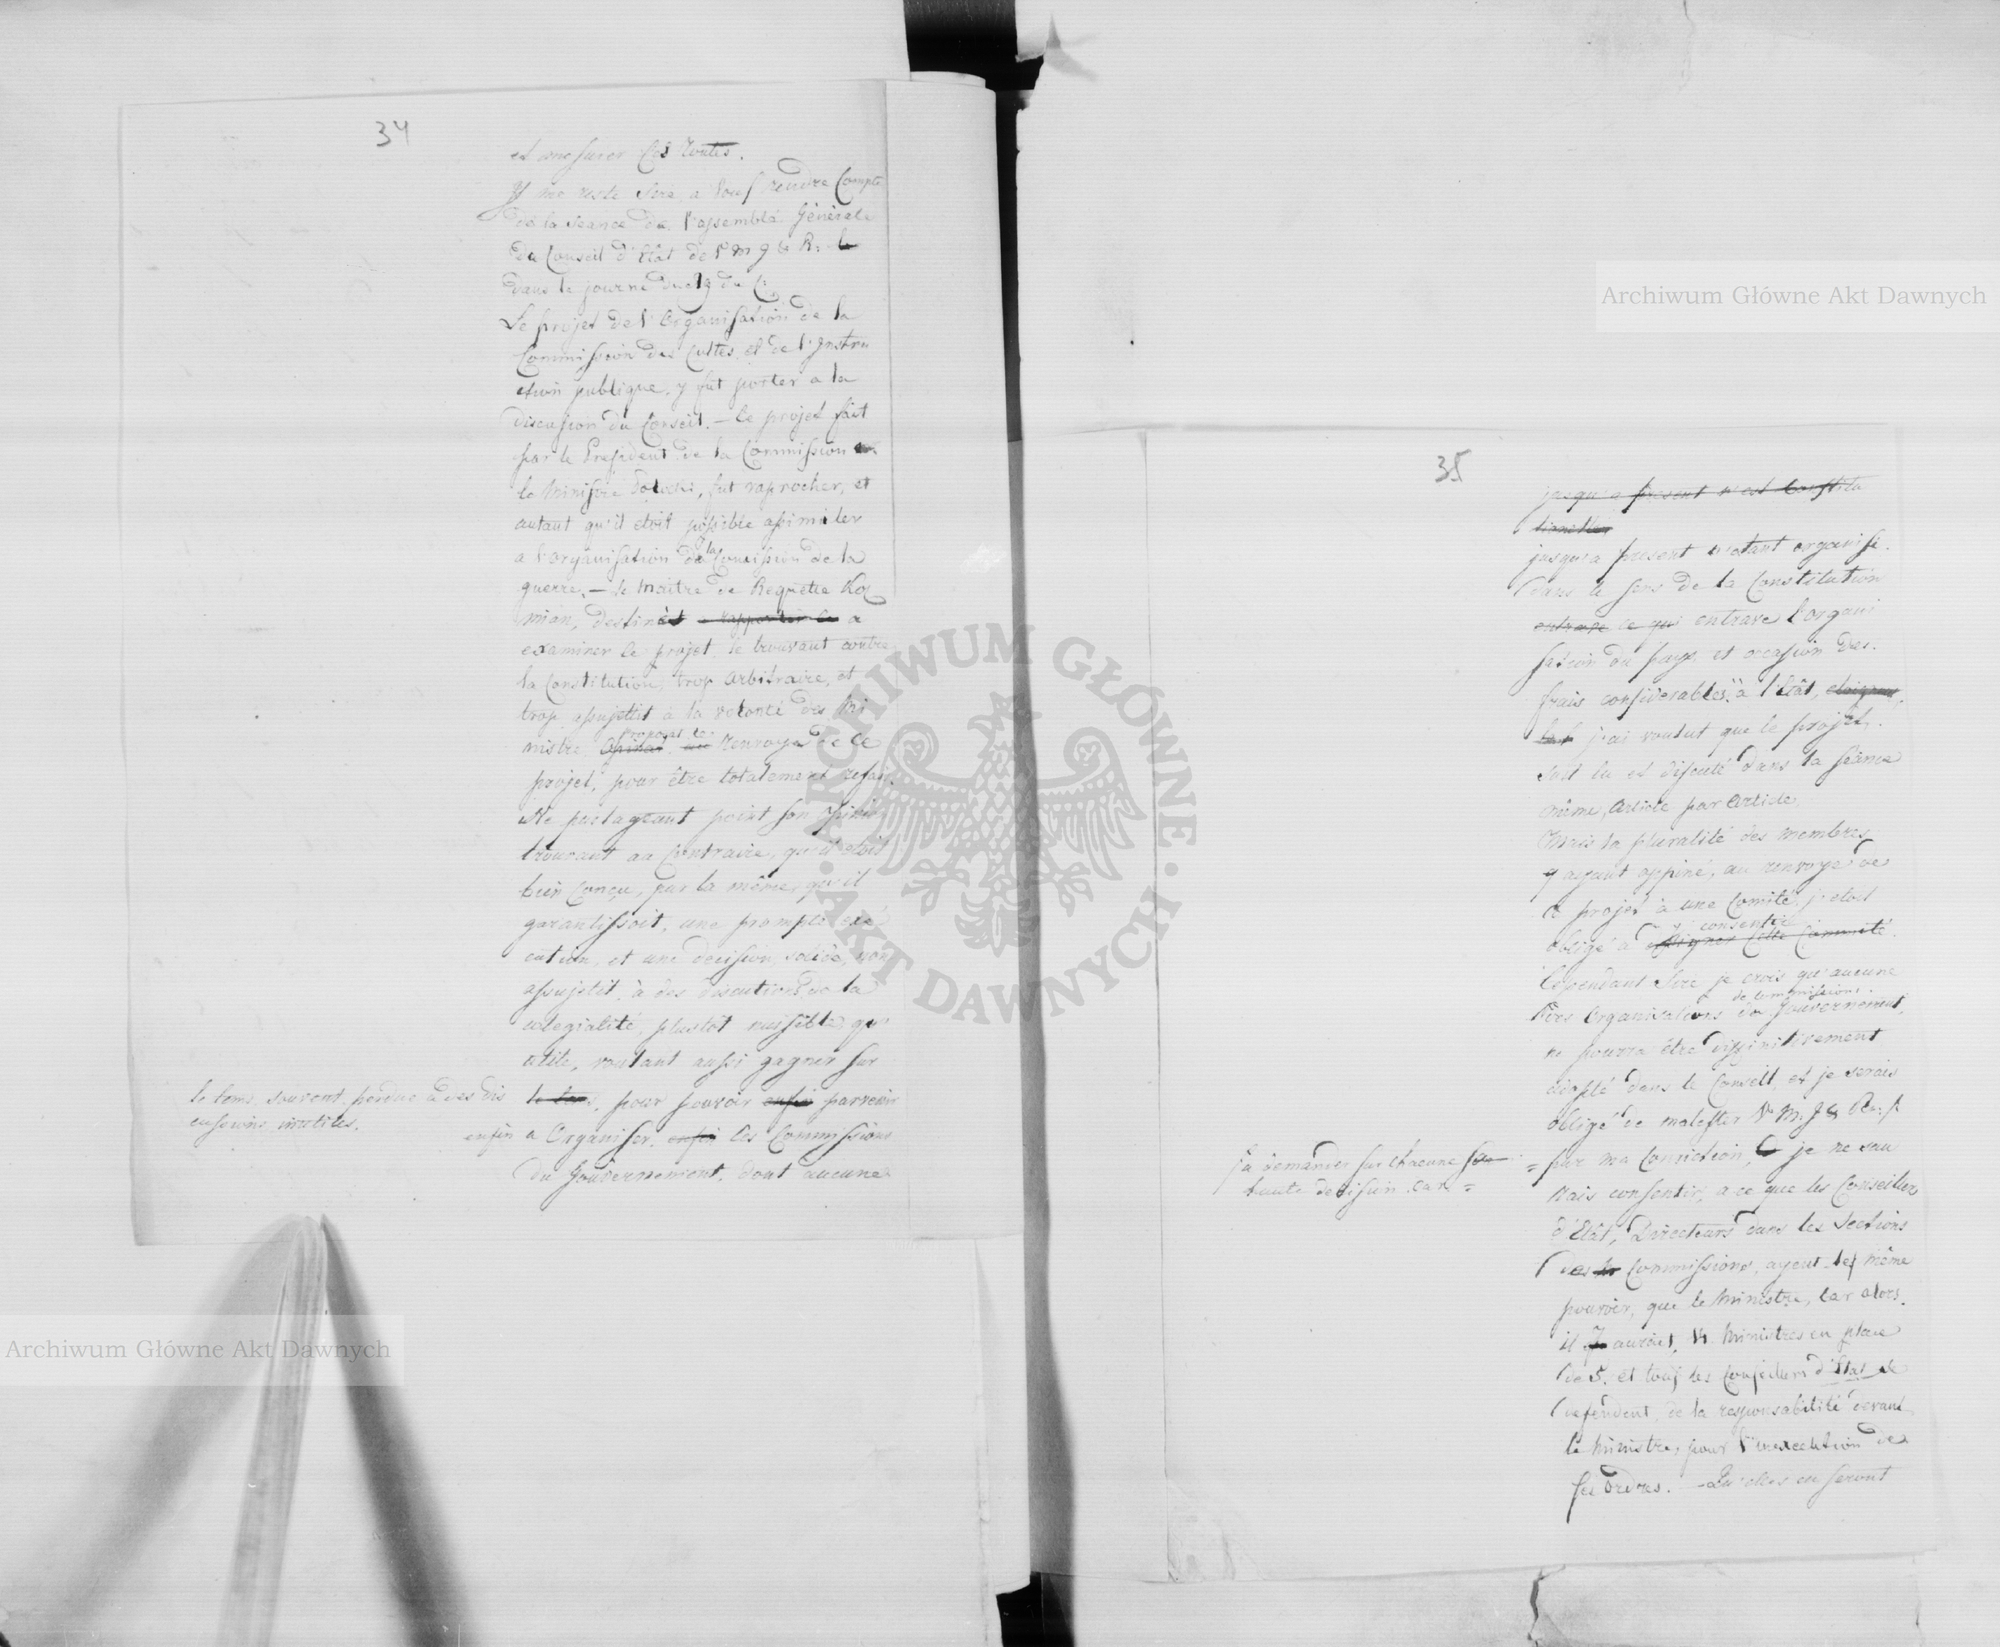 34
et mesurer Ces Routes.
Il me reste Sire, a Vous rendre Compte
de la seance de l'assemblé Générale
du Conseil d'Etat de V M J & R: le
dans la journé du 19 du C:
Le projet de l'Organisation de la
Commission des Cultes et de l'Instru
ction publique, y fut porter a la
discusion du Conseil. – Ce projet fait
par le President de la Commission
le Ministre Potocki, fut raprocher, et
autant qu'il etoit possible assimiler
a l'organisation de la Comission de la
guerre. – le Maitre de Requette Koź
mian, destiné a rapporter le a
examiner le projet, le trouvant contre
la Constitution, trop Arbitraire, et
trop assujettit à la volonté des Mi
nistre proposat le renvoye de Ce
projet, pour être totalement refait.
Ne partageant point son opinion
trouvant au Contraire, qu'il etoit
bien Conçu, par la même, qu'il
garantissoit, une prompte exé
cution, et une decision solide, non
assujetit à des discutions de la
colegialité, plustôt nuissible qu'
utile, voulant aussi gagner sur
le tems, souvent perdue à des dis
cussions inutiles.
le tems, pour pouvoir enfin parvenir
enfin a Organiser enfin les Commissions
du Gouvernement, dont aucune
35
jusqu'a present n'est Constitu
tionelle
jusqu'a present n'etant organisé
dans le sens de la Constitution
entrave ce qui entrave l'organi
sation du pays et occasion des
frais considerables à l'Etât,
j'ai voulut que le projet
soit lu et discuté dans la séance
même, Article par Article.
Mais la pluralité des membres
y ayant oppiné, au renvoye de
ce projet à une Comité, j'etoit
obligé a y consentir assigner Cette Commité.
Cependant Sire je crois qu'aucune
des Organisations de Commissions du Gouvernement,
ne pourra être diffinitivement
adopté dans le Conseil, et je serais
obligé de molester V: M: J & R:
j'a demander sur chacune Sa
haute decision. Car =
= par ma Conviction, je ne sau
rais consentir, a ce que les Conseiller
d'Etât, Directeurs dans les Sections
des Commissions, ayent les même
pouvoir, que le Ministre, Car alors
il y auroit, 14 Ministres en place
de 5. et tous les Conseillers d'Etat se
defendent de la responsabilité devant
le Ministre, pour l'inexecution de
ses Ordres. – Qu'elles en seront
Archiwum Główne Akt Dawnych
Archiwum Główne Akt Dawnych
ARCHIWUM GŁÓWNE AKT DAWNYCH